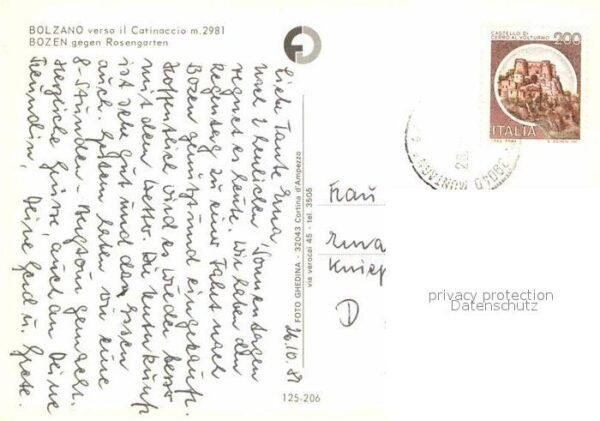 BOLZANO verso il Catinaccio m. 2981
BOZEN gegen Rosengarten
26.10.87
Liebe Tante Erna,
nach 2 herrlichen Sonnentagen
regnet es heute. Wir haben den
Regentag zu einer Fahrt nach
Bozen genutzt und eingekauft.
Hoffentlich wird es wieder besser
mit dem Wetter. Die Unterkunft
ist sehr gut und das Essen
auch. Gestern haben wir eine
8-Stunden-Bergtour gemacht.
Herzliche Grüße, auch an Deine
Freundin, Deine Gerd u. Grete.
FOTO GHEDINA - 32043 Cortina d'Ampezzo
via verocai 45 - tel. 3505
125-206
CASTELLO DI
CERRO AL VOLTURNO
200
ITALIA
Frau
Erna
D
privacy protection
Datenschutz